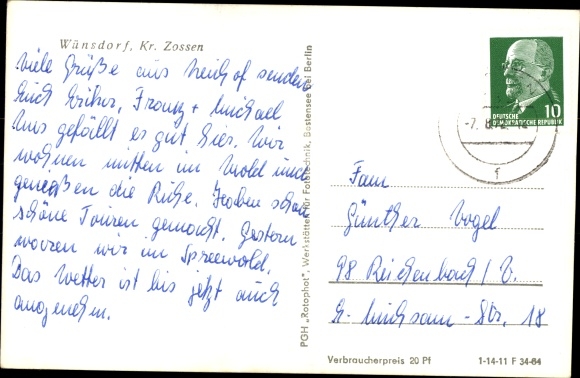 Wünsdorf, Kr. Zossen
Viele Grüße aus senden
Euch Franz + Michael
Uns gefällt es gut hier. Wir
wohnen mitten im Wald und
genießen die Ruhe. Haben schon
schöne Touren gemacht. Gestern
waren wir im Spreewald.
Das Wetter ist bis jetzt auch
angenehm.
PGH „Rotophot", Werkstätten für Fototechnik, Bestensee bei Berlin
10
DEUTSCHE
DEMOKRATISCHE REPUBLIK
Fam
Günther Vogel
98 Reichenbach / V.
Str. 18
Verbraucherpreis 20 Pf
1-14-11 F 34-64